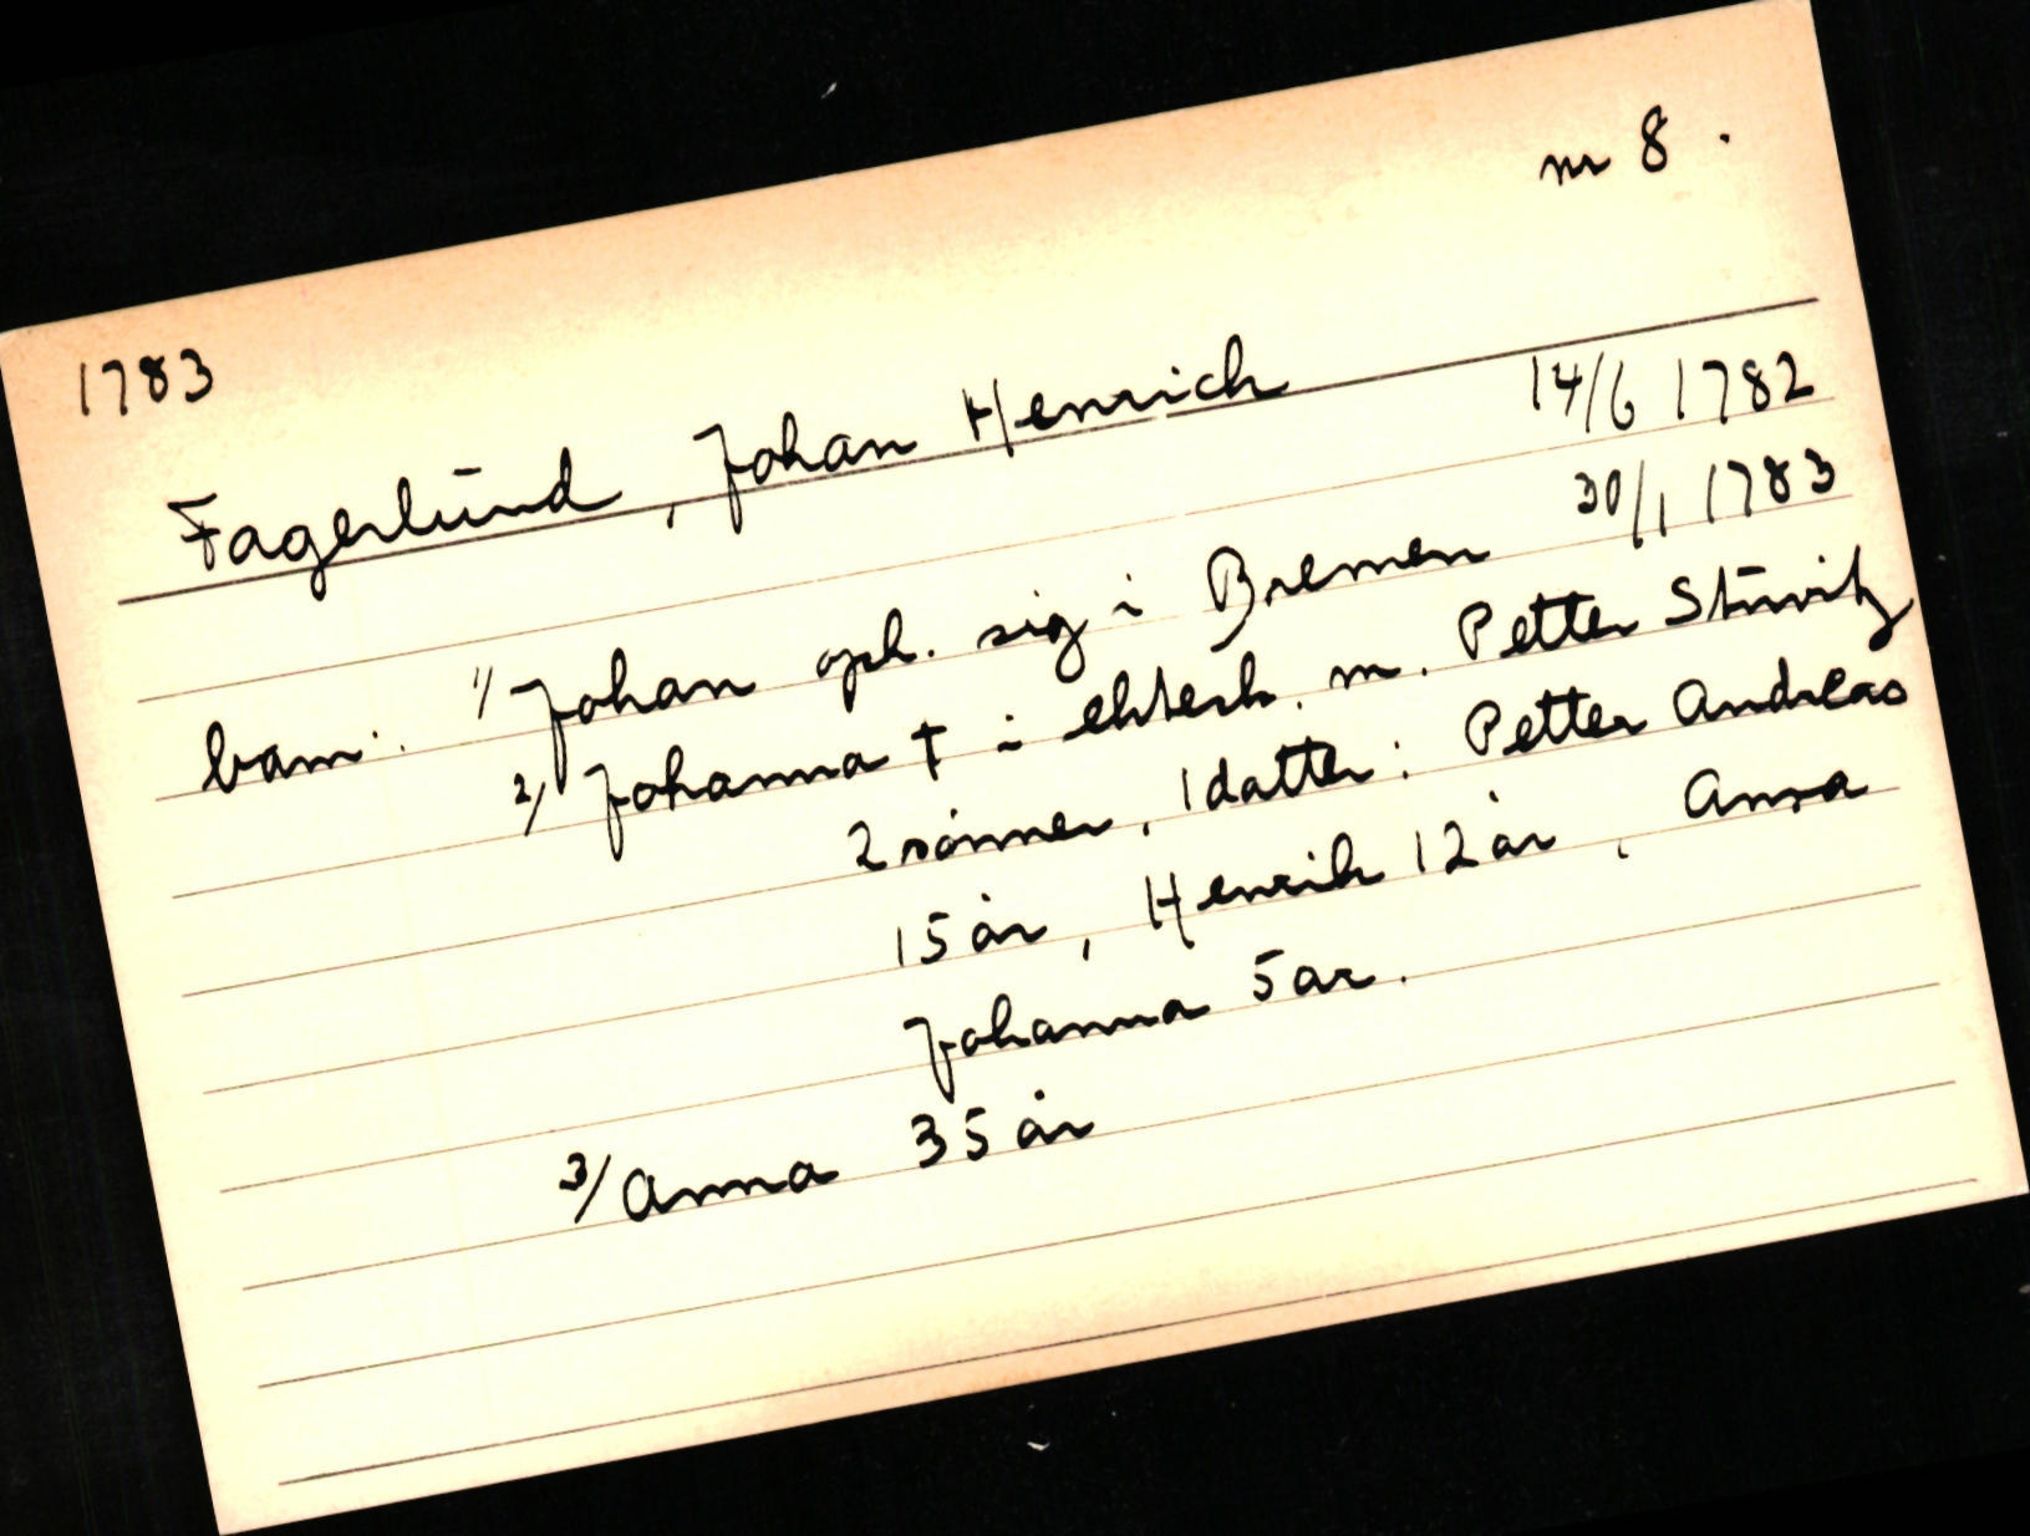 nr 8.
1783
Fagerlund, Johan Henrich
14/6 1782
30/1 1783
barn: 1/ Johan oph. sig i Bremen
2/ Johanna † i ektesk. m. Petter
2 sönner, 1 datter: Petter Andreas
15 år, Henrik 12 år, Anna
Johanna 5 ar.
3/ Anna 35 år